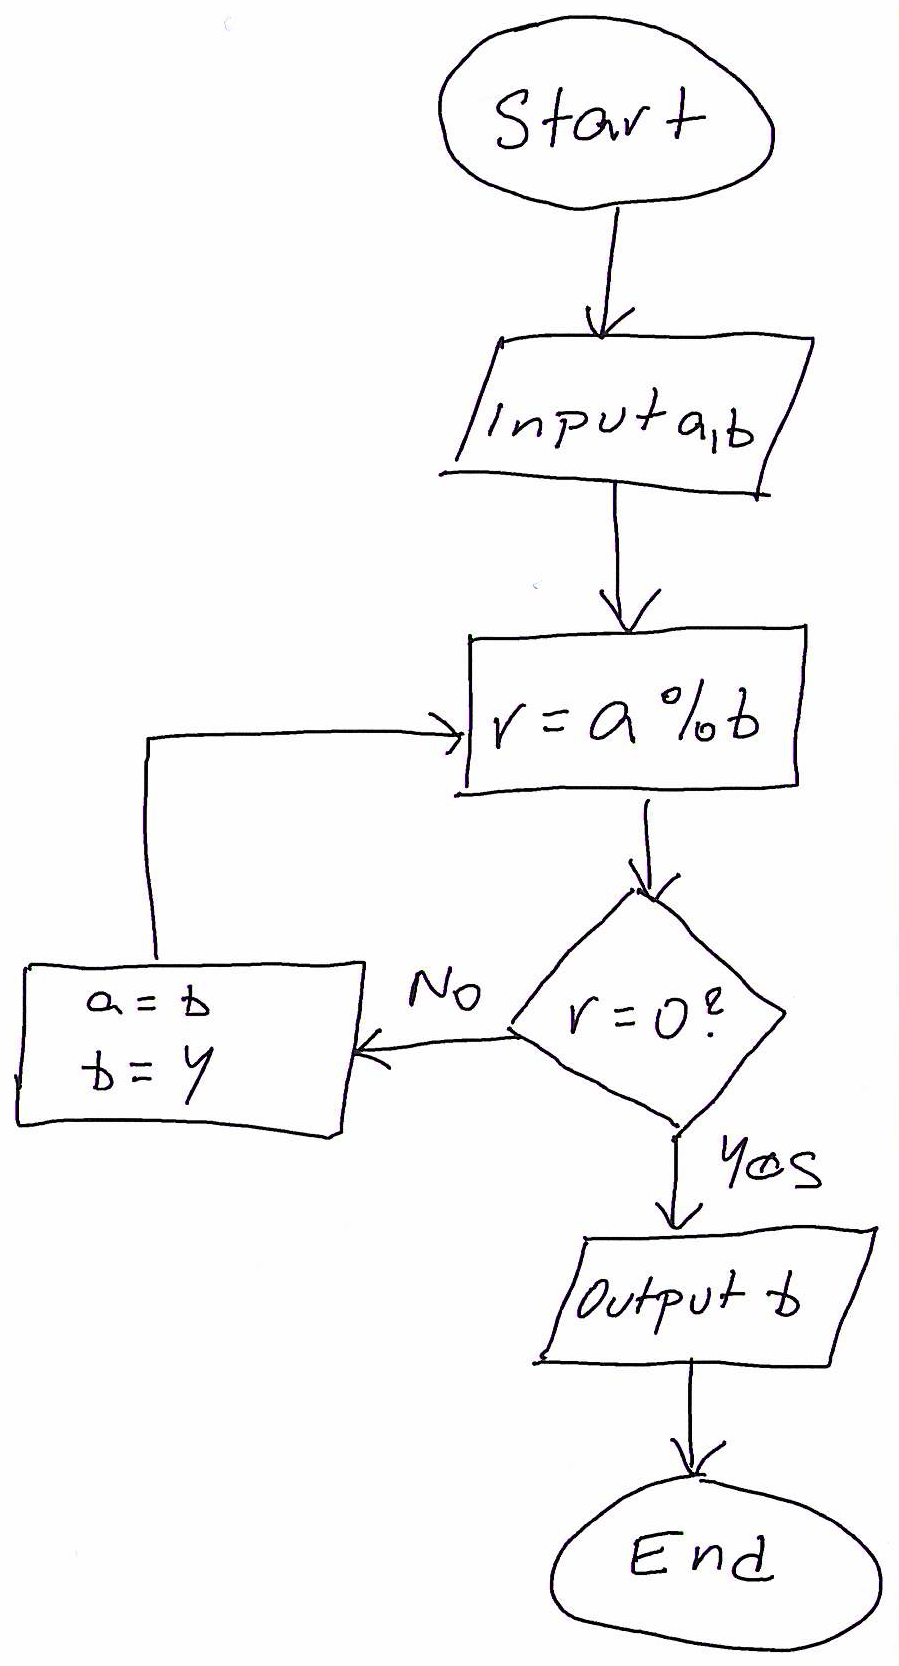 Start
Input a,b
r = a % b
r = 0?
No
a = b
b = y
Yes
Output b
End